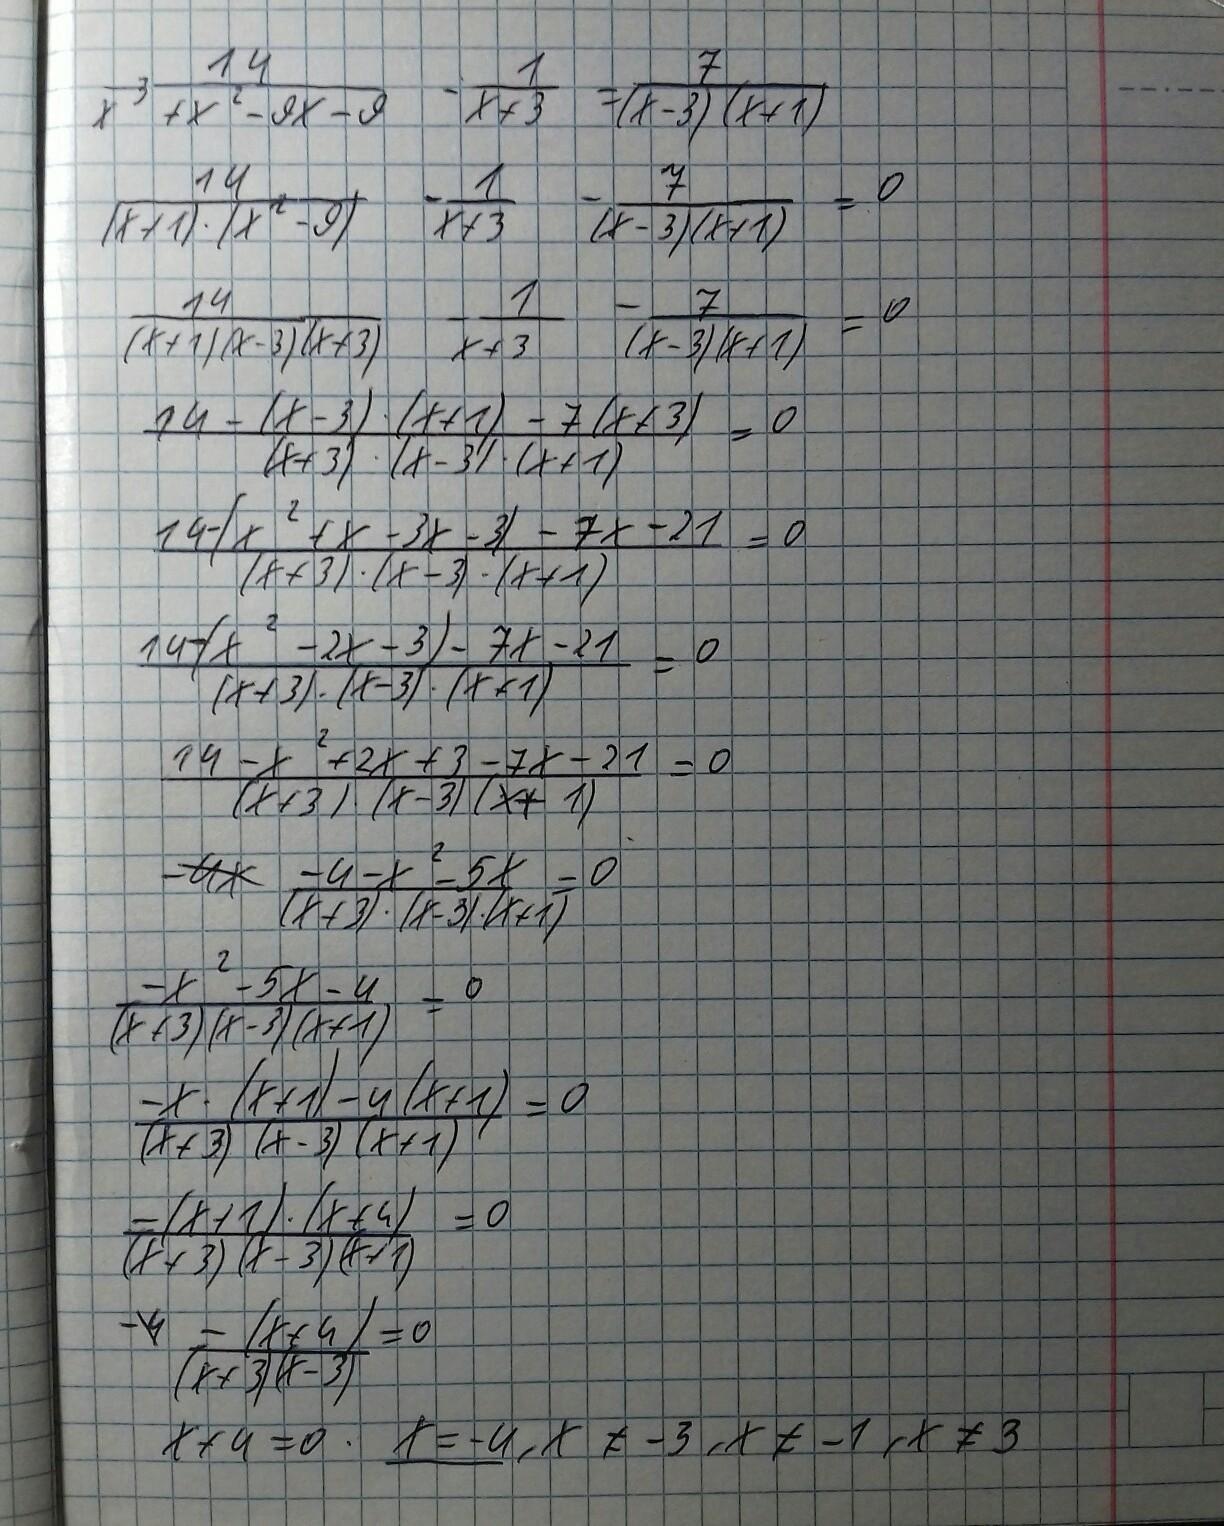 14/(x³+x²-9x-9) - 1/(x+3) = 7/((x-3)(x+1))
14/((x+1)·(x²-9)) - 1/(x+3) - 7/((x-3)(x+1)) = 0
14/((x+1)(x-3)(x+3)) - 1/(x+3) - 7/((x-3)(x+1)) = 0
(14-(x-3)·(x+1)-7(x+3))/((x+3)·(x-3)·(x+1)) = 0
(14-(x²+x-3x-3)-7x-21)/((x+3)·(x-3)·(x+1)) = 0
(14-(x²-2x-3)-7x-21)/((x+3)·(x-3)·(x+1)) = 0
(14-x²+2x+3-7x-21)/((x+3)·(x-3)(x+1)) = 0
-4x (-4-x²-5x)/((x+3)·(x-3)·(x+1)) = 0
(-x²-5x-4)/((x+3)(x-3)(x+1)) = 0
(-x·(x+1)-4(x+1))/((x+3)(x-3)(x+1)) = 0
(-(x+1)·(x+4))/((x+3)(x-3)(x+1)) = 0
-4 (-(x+4))/((x+3)(x-3)) = 0
x+4=0. x=-4, x≠-3, x≠-1, x≠3